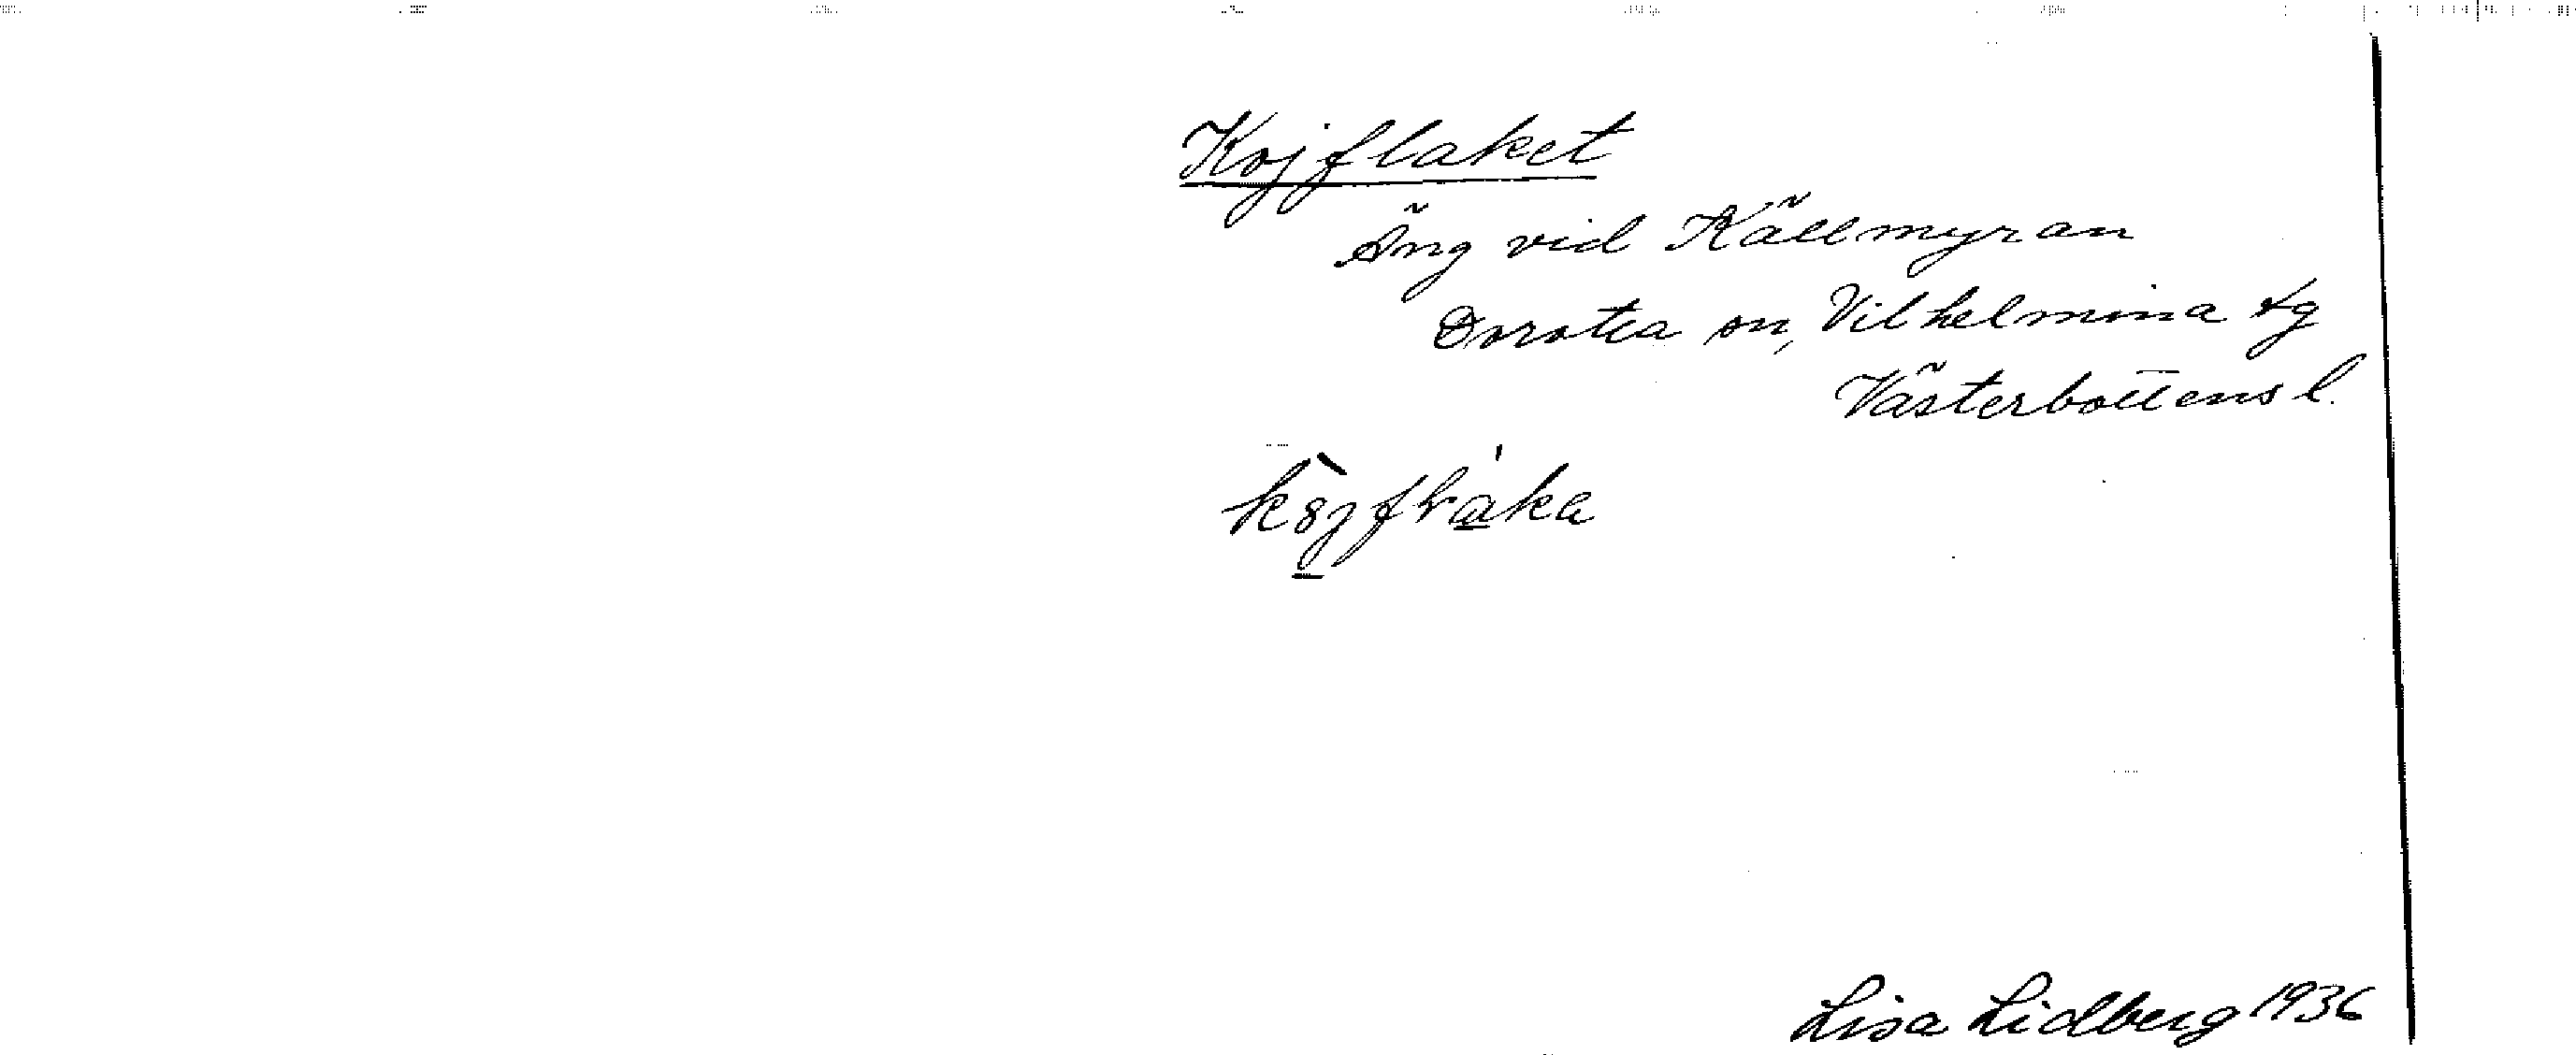 Kojflaket
Äng vid Källmyran
Dorotea sn, Vilhelmina tg
Västerbottens l.
Lisa Lidberg 1936